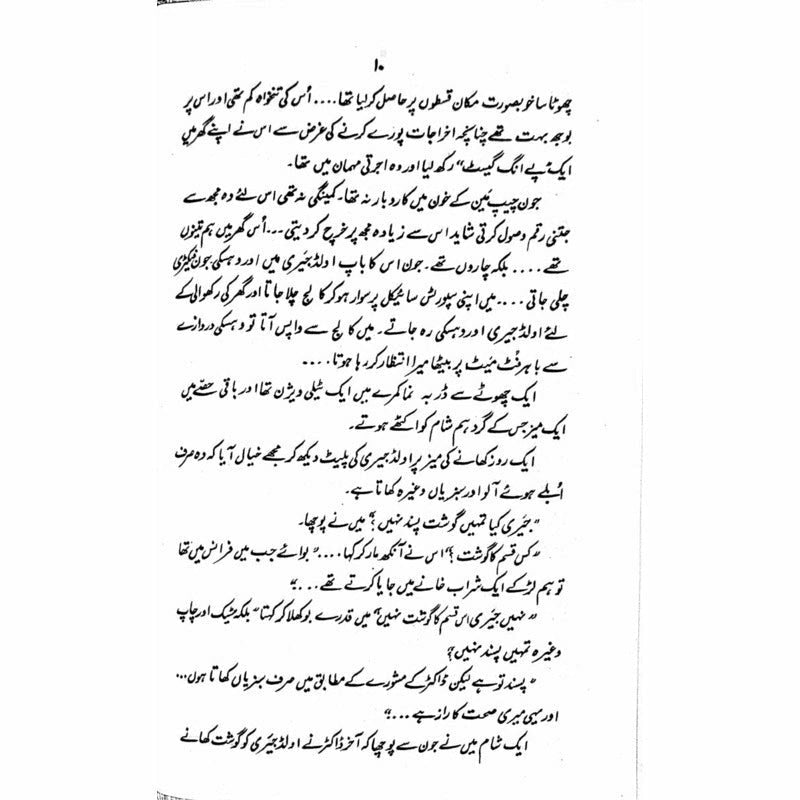 ۱۰
چھوٹا سا خوبصورت مکان قسطوں پر حاصل کر لیا تھا.... اُس کی تنخواہ کم تھی اور اس پر
بوجھ بہت تھے چنانچہ اخراجات پورے کرنے کی غرض سے اس نے اپنے گھر میں
ایک "پے انگ گیسٹ" رکھ لیا اور وہ اجرتی مہمان میں تھا۔
جون چیپ مَین کے خون میں کاروبار نہ تھا۔ کمینگی نہ تھی اس لئے وہ مجھ سے
جتنی رقم وصول کرتی شاید اس سے زیادہ مجھ پر خرچ کر دیتی... اُس گھر میں ہم تینوں
تھے.... بلکہ چاروں تھے۔ جون اس کا باپ اولڈ جَیری میں اور وہسکی جون فیکڑی
چلی جاتی.... میں اپنی سپورٹس سائیکل پر سوار ہو کر کالج چلا جاتا اور گھر کی رکھوالی کے
لئے اولڈ جیری اور وہسکی رہ جاتے۔ میں کالج سے واپس آتا تو وہسکی دروازے
سے باہر فُٹ میَٹ پر بیٹھا میرا انتظار کر رہا ہوتا....
ایک چھوٹے سے ڈربہ نما کمرے میں ایک ٹیلی ویژن تھا اور باقی حصّے میں
ایک میز جس کے گرد ہم شام کو اکٹھے ہوتے۔
ایک روز کھانے کی میز پر اولڈ جیری کی پلیٹ دیکھ کر مجھے خیال آیا کہ وہ صرف
اُبلے ہوئے آلو اور سبزیاں وغیرہ کھاتا ہے۔
"جَیری کیا تمہیں گوشت پسند نہیں؟" میں نے پوچھا۔
"کس قسم کا گوشت؟" اس نے آنکھ مار کر کہا...." بوائے جب میں فرانس میں تھا
تو ہم لڑکے ایک شراب خانے میں جایا کرتے تھے..."
"نہیں جَیری اس قسم کا گوشت نہیں" میں قدرے بوکھلا کر کہتا "بلکہ سٹیک اور چاپ
وغیرہ تمہیں پسند نہیں؟
"پسند تو ہے لیکن ڈاکٹر کے مشورے کے مطابق میں صرف سبزیاں کھاتا ہوں...
اور یہی میری صحت کا راز ہے..."
ایک شام میں نے جون سے پوچھا کہ آخر ڈاکٹر نے اولڈ جَیری کو گوشت کھانے